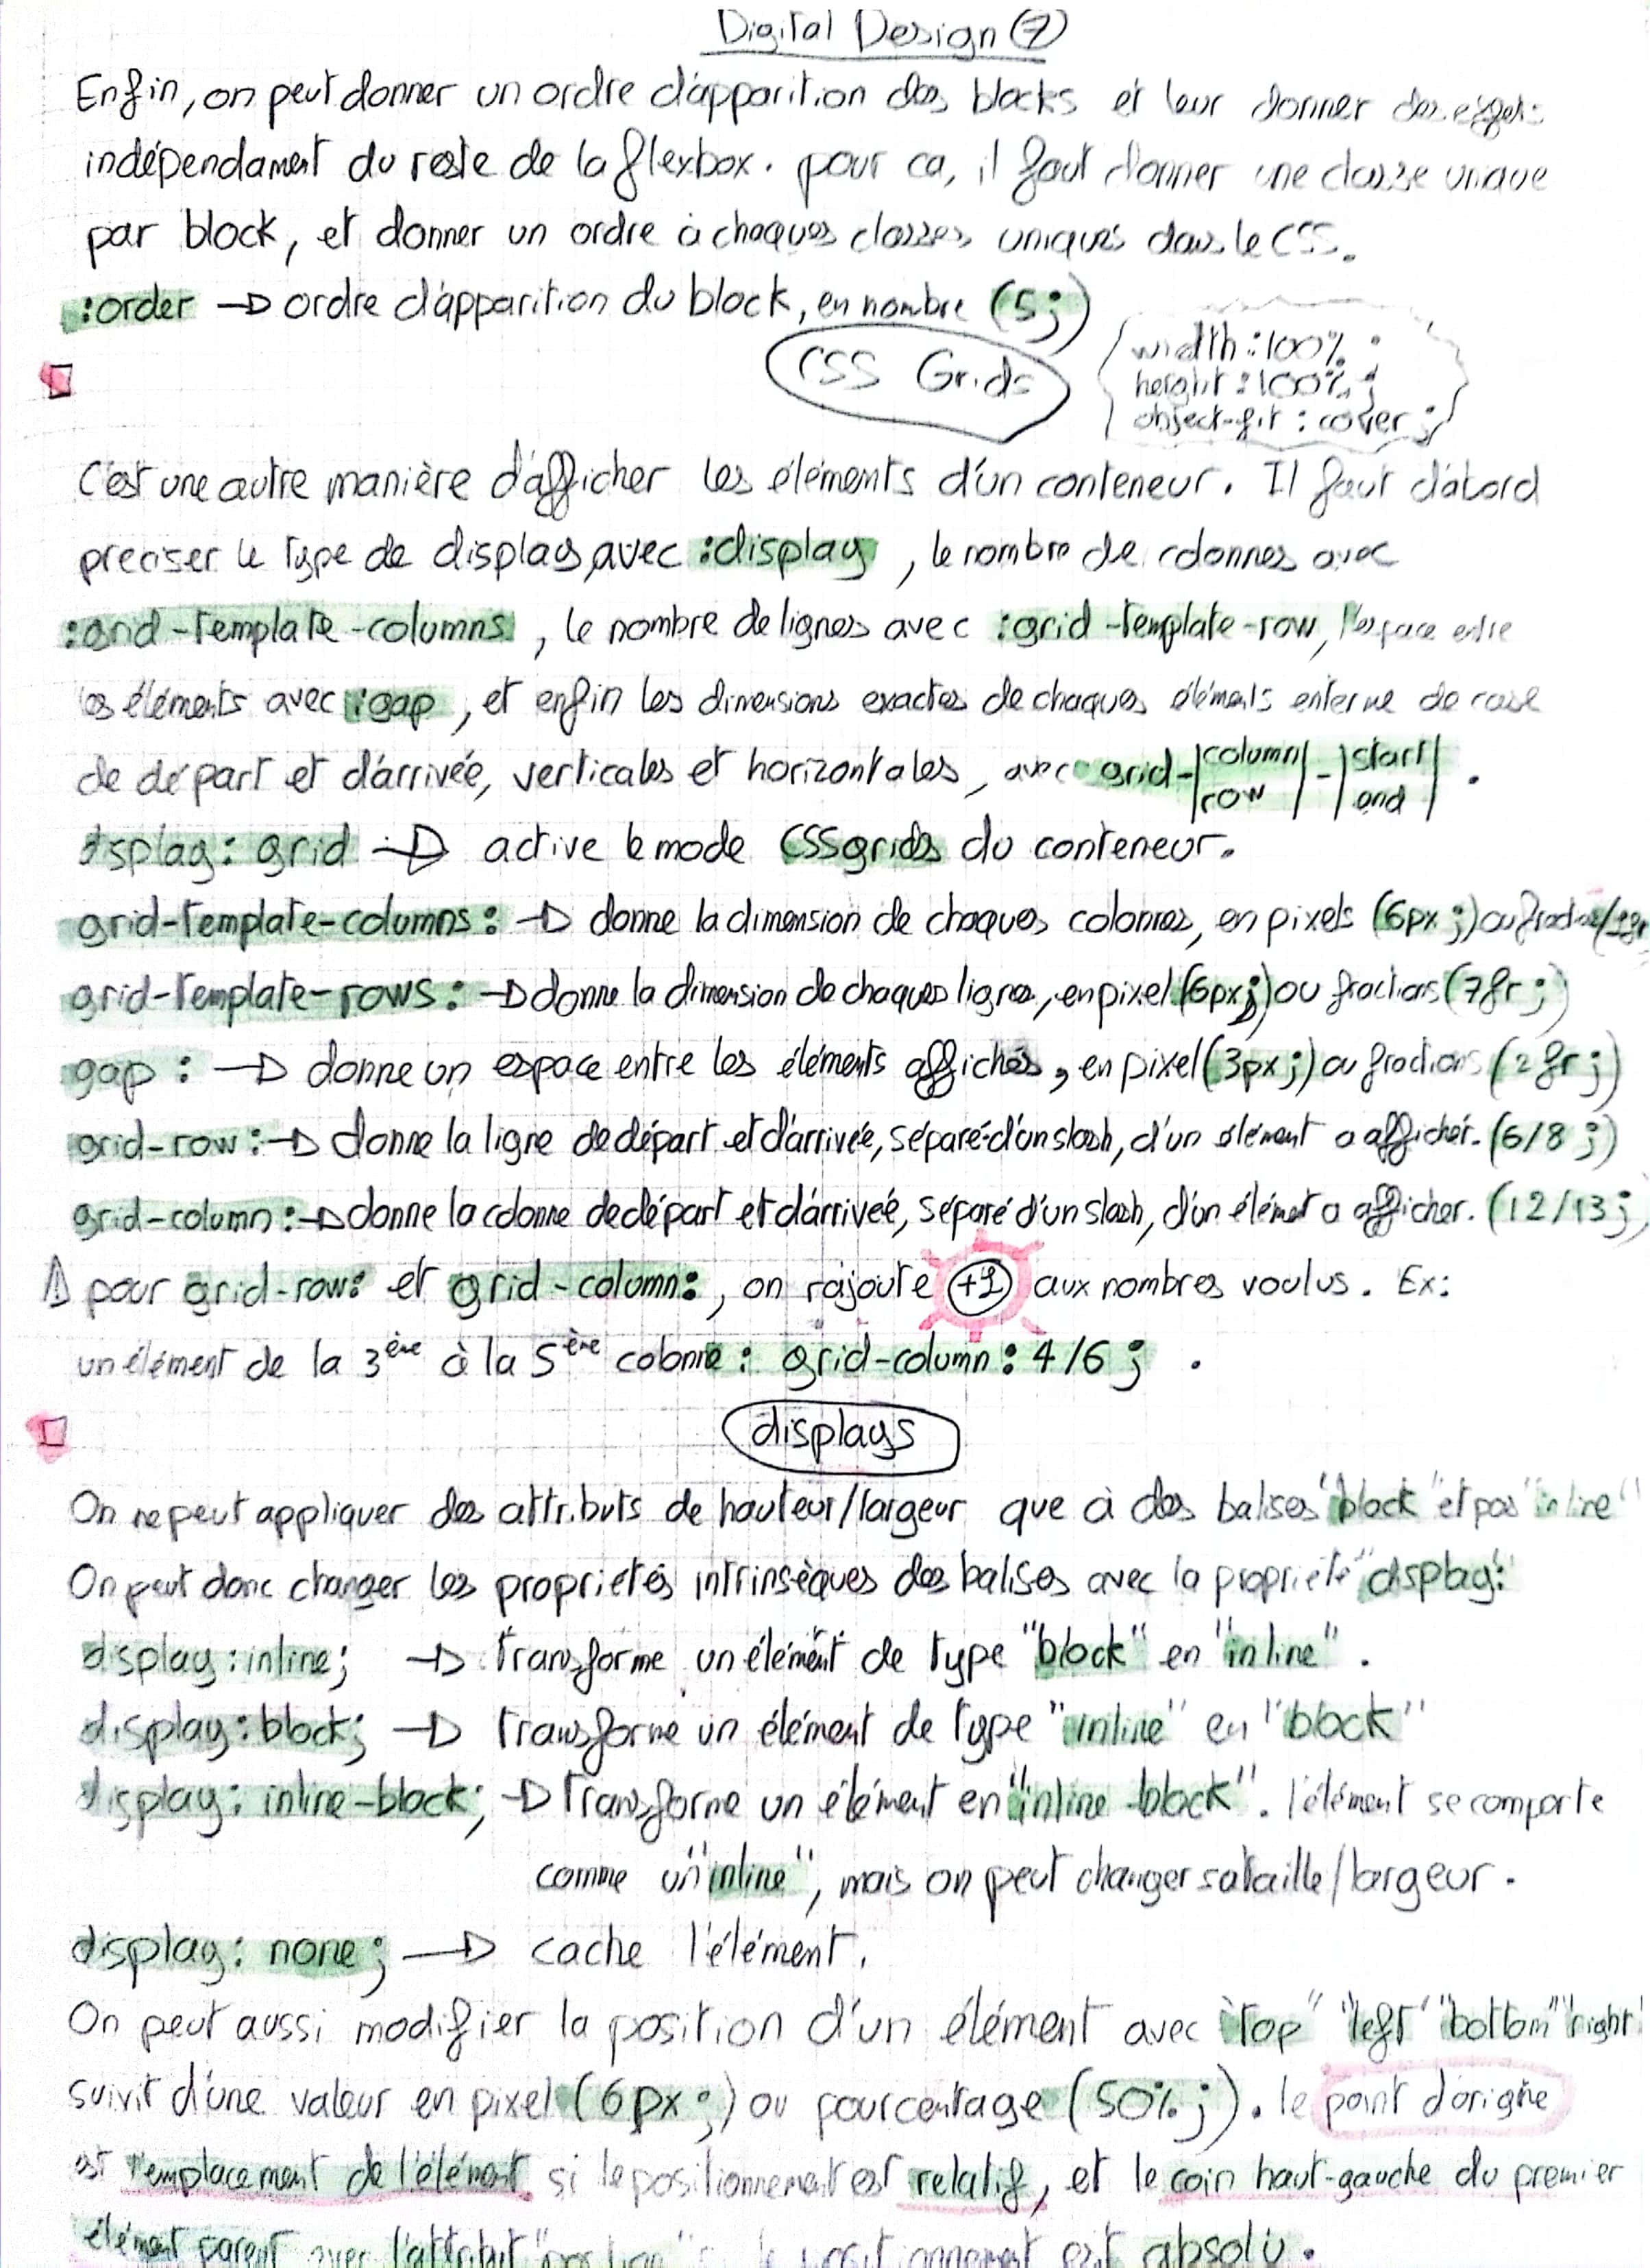 Digital Design ⑦
Enfin, on peut donner un ordre d'apparition des blocks et leur donner des effets
indépendament du reste de la flexbox. pour ca, il faut donner une classe unique
par block, et donner un ordre à chaques classes uniques dans le CSS.
:order → ordre d'apparition du block, en nombre (5;)
CSS Grids
width : 100% ;
height : 100% ;
object-fit : cover ;
C'est une autre manière d'afficher les éléments d'un conteneur. Il faut d'abord
preciser le type de display avec :display , le nombre de colonnes avec
:grid-template-columns , le nombre de lignes avec :grid-template-row, l'espace entre
les éléments avec :gap , et enfin les dimensions exactes de chaques éléments en terme de case
de départ et d'arrivée, verticales et horizontales, avec grid-|column row|-|start end| .
display: grid → active le mode CSS grids du conteneur.
grid-template-columns : → donne la dimension de chaques colonnes, en pixels (6px ;) ou fractions (1fr
grid-template-rows : → donne la dimension de chaques lignes, en pixel (6px;) ou fractions (7fr ;)
gap : → donne un espace entre les éléments affichés, en pixel (3px ;) ou fractions (2fr ;)
grid-row : → donne la ligne de départ et d'arrivée, séparé d'un slash, d'un élément a afficher. (6/8 ;)
grid-column : → donne la colonne de départ et d'arriveé, séparé d'un slash, d'un élémet a afficher. (12/13 ;)
⚠ pour grid-row: et grid-column:, on rajoute +1 aux nombres voulus. Ex:
un élément de la 3ème à la 5ème colonne : grid-column : 4/6 ; .
displays
On ne peut appliquer des attributs de hauteur/largeur que à des balises "block" et pas "inline"
On peut donc changer les proprietés intrinsèques des balises avec la propriété "display:"
display : inline; → Transforme un élément de type "block" en "inline" .
display : block; → Transforme un élément de type "inline" en "block"
display : inline-block; → Transforme un élément en "inline-block". l'élément se comporte
comme un "inline", mais on peut changer sa taille/largeur.
display: none ; → cache l'élément.
On peut aussi modifier la position d'un élément avec "Top" "left" "bottom" "right"
suivit d'une valeur en pixel (6px ;) ou pourcentage (50% ;). le point d'origine
est l'emplacement de l'élément si le positionnement est relatif, et le coin haut-gauche du premier
élément parent avec l'attribut "position" si le positionnement est absolu.